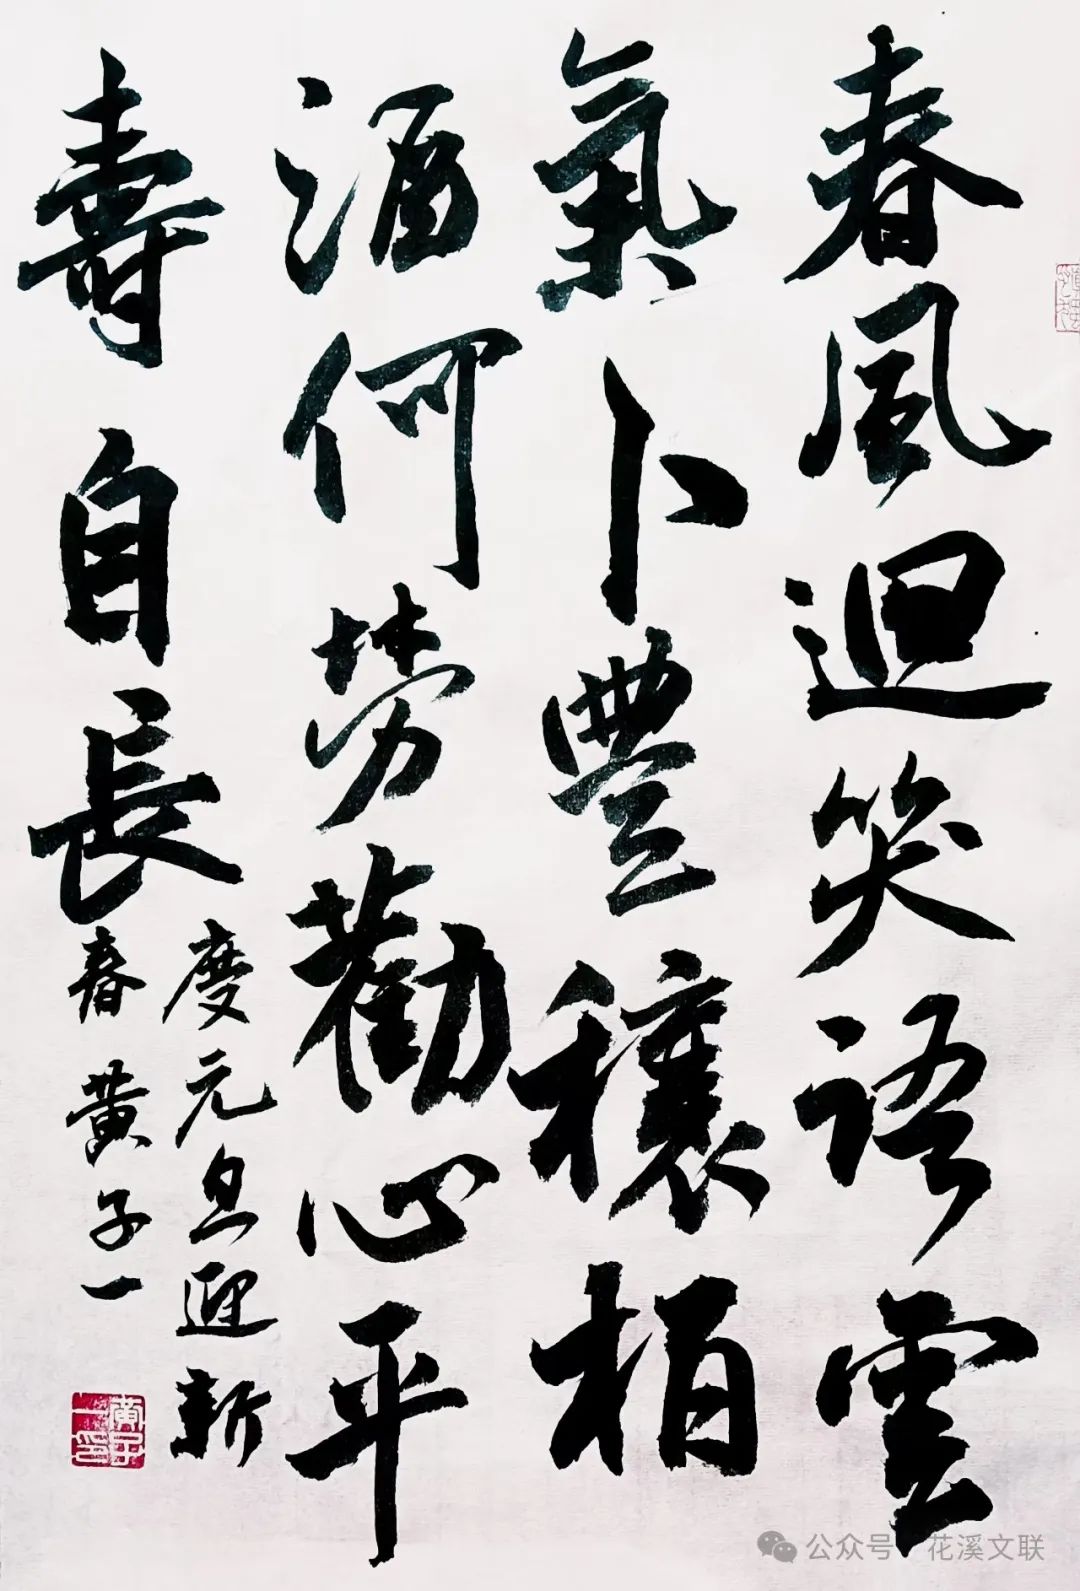 春風迴笑語雲
氣卜豐穰柏
酒何勞勸心平
壽自長
度元旦迎新
春 黄子一
黄子一印
公众号 花溪文联